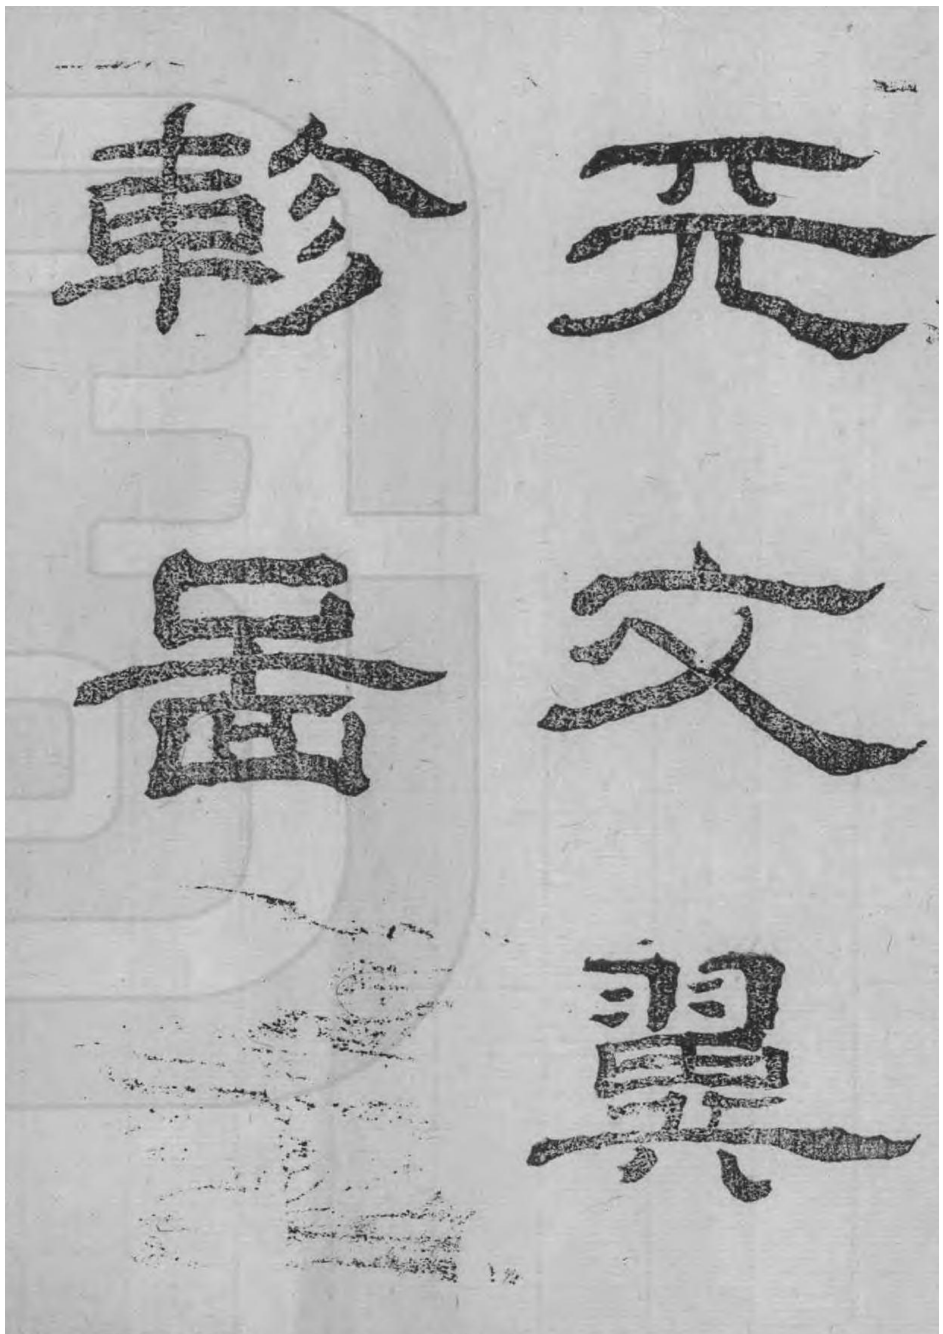 天文翼
軫岳